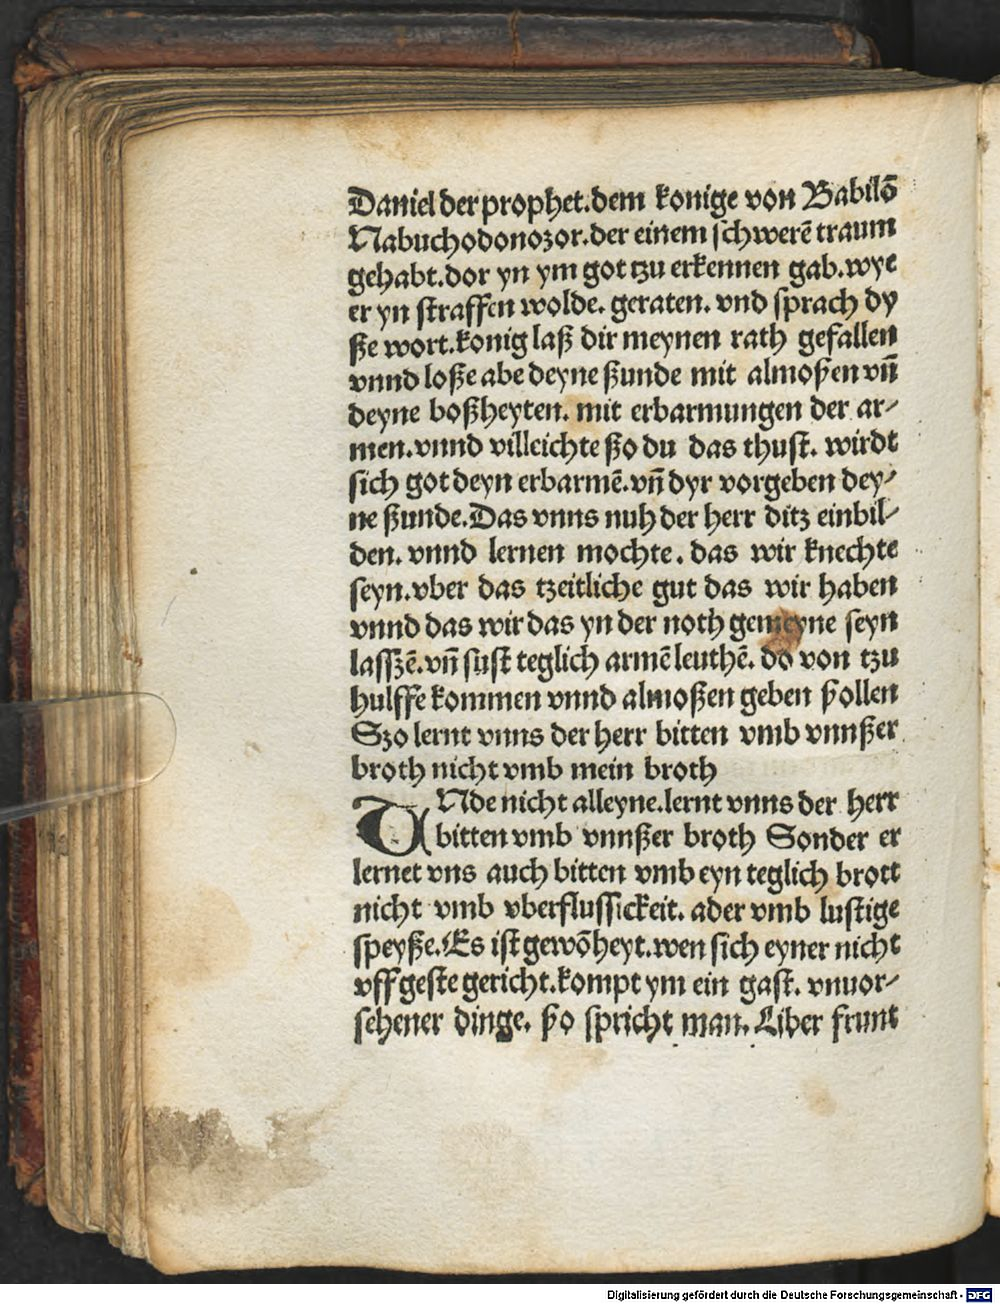 Daniel der prophet. dem konige von Babilō
Nabuchodonozor. der einem schwerē traum
gehabt. dor yn ym got tzu erkennen gab. wye
er yn straffen wolde. geraten. vnd sprach dy
ße wort. konig laß dir meynen rath gefallen
vnnd loße abe deyne ßunde mit almoßen vñ
deyne boßheyten. mit erbarmungen der ar⸗
men. vnnd villeichte ßo du das thust. wirdt
sich got deyn erbarmē. vñ dyr vorgeben dey⸗
ne ßunde. Das vnns nuh der herr ditz einbil⸗
den. vnnd lernen mochte. das wir knechte
seyn. vber das tzeitliche gut das wir haben
vnnd das wir das yn der noth gemeyne seyn
lasszē. vñ sust teglich armē leuthē. do von tzu
hulffe kommen vnnd almoßen geben ßollen
Szo lernt vnns der herr bitten vmb vnnßer
broth nicht vmb mein broth
VNde nicht alleyne. lernt vnns der herr
bitten vmb vnnßer broth Sonder er
lernet vns auch bitten vmb eyn teglich brott
nicht vmb vberflussickeit. ader vmb lustige
speyße. Es ist gewōheyt. wen sich eyner nicht
vff geste gericht. kompt ym ein gast. vnuor⸗
sehener dinge. ßo spricht man. Liber frunt
Digitalisierung gefördert durch die Deutsche Forschungsgemeinschaft - DFG